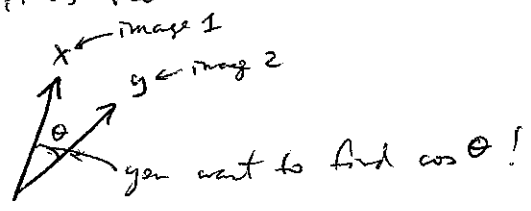 x ← image 1
y ← imag 2
θ
you want to find cos θ !